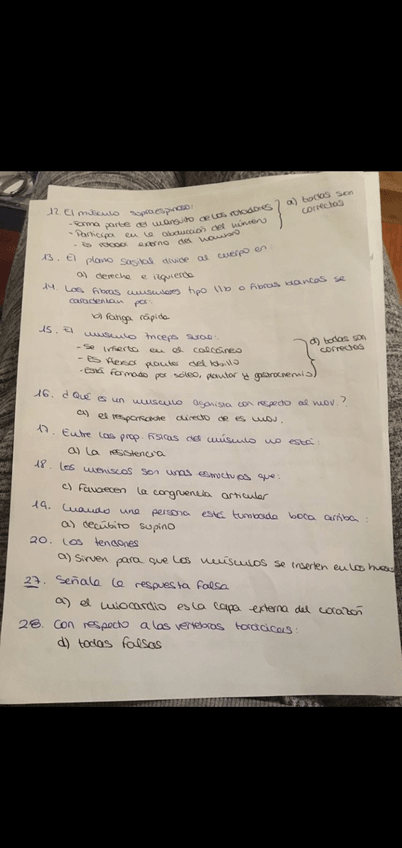 12. El músculo supraespinoso:
- Forma parte del manguito de los rotadores
- Participa en la abducción del húmero
- Es rotador externo del hombro
d) todas son correctas
13. El plano sagital divide al cuerpo en:
a) derecha e izquierda
14. Las fibras musculares tipo IIb o fibras blancas se
caracterizan por:
b) Fatiga rápida
15. El músculo triceps sural:
- Se inserta en el calcáneo
- Es flexor plantar del tobillo
- Está formado por sóleo, plantar y gastrocnemio
d) todas son correctas
16. ¿Qué es un músculo agonista con respecto al mov.?
a) el responsable directo de es mov.
17. Entre las prop. Físicas del músculo no está:
a) La resistencia
18. Los meniscos son unas estructuras que:
c) Favorecen la congruencia articular
19. Cuando una persona está tumbada boca arriba:
a) decúbito supino
20. Los tendones
a) Sirven para que los músculos se inserten en los huesos
27. Señala la respuesta falsa
a) el miocardio es la capa externa del corazón
28. Con respecto a las vértebras torácicas:
d) todas falsas